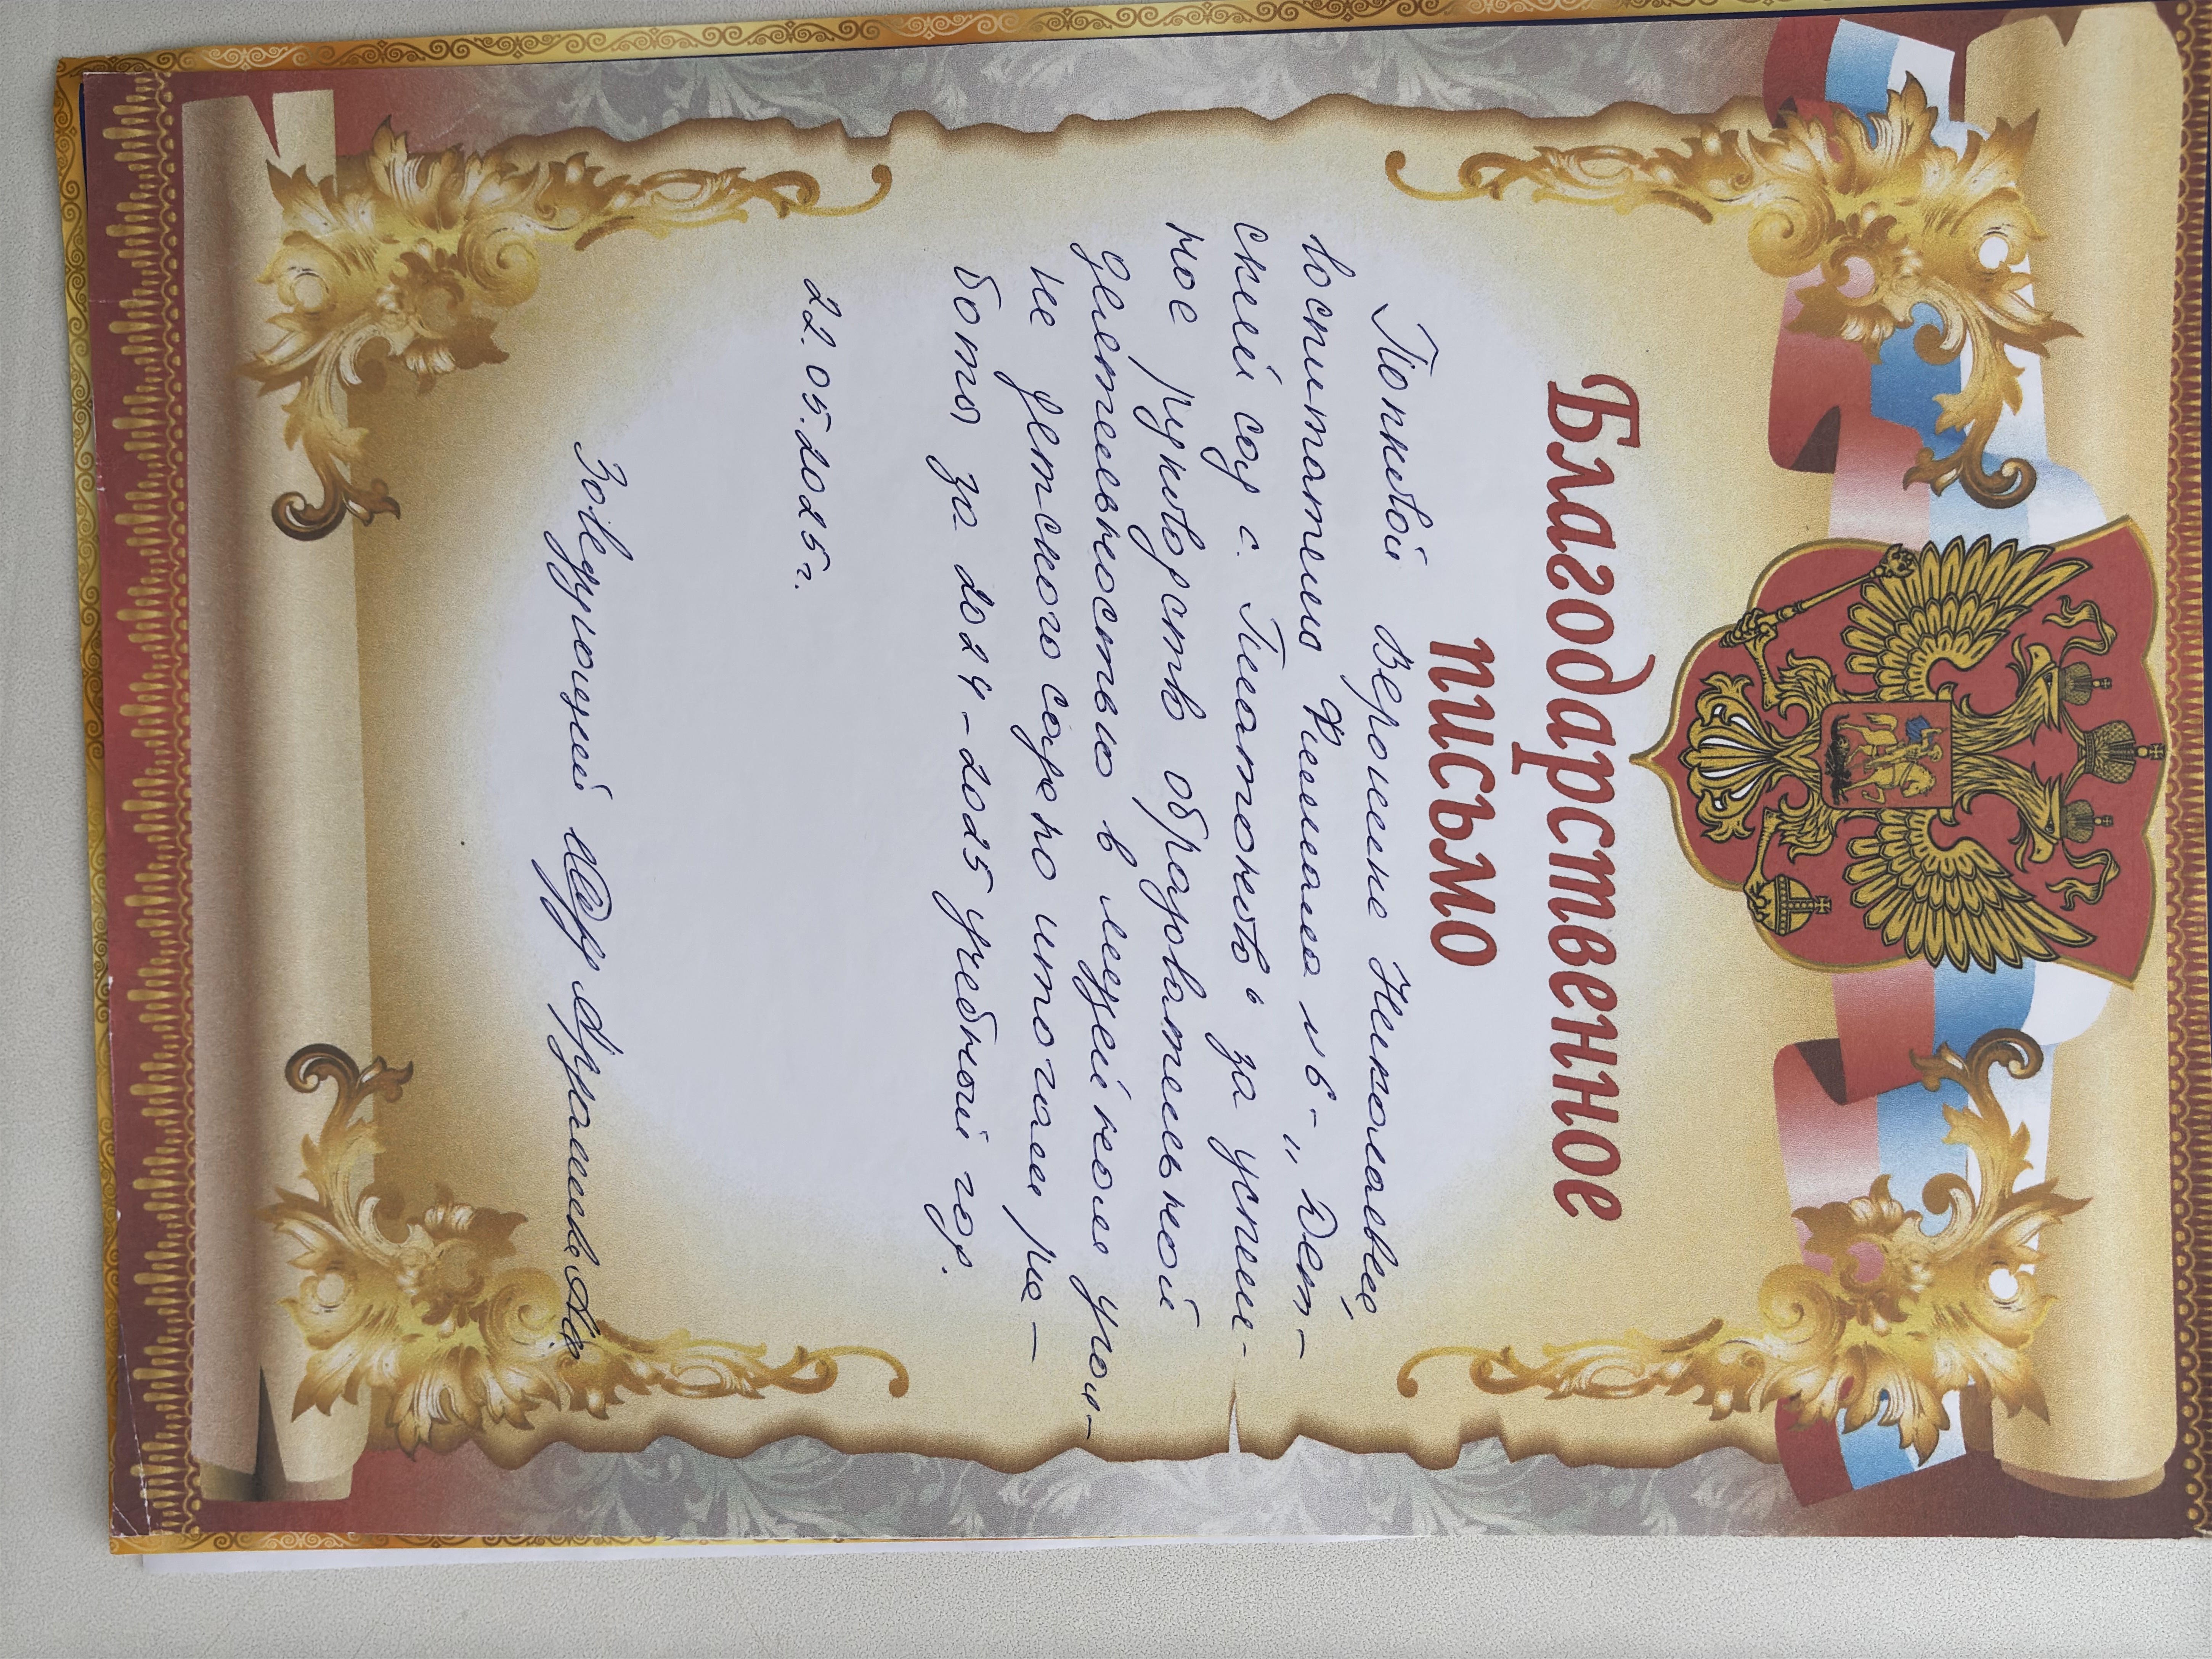 Благодарственное
письмо
Попковой Веронике Николаевне,
воспитателю Филиала №6 - „Дет-
ский сад с. Платоновка“ за успеш-
ное руководство образовательной
деятельностью в музейном угол-
ке детского сада по итогам ра-
боты за 2024-2025 учебный год.
22.05.2025г.
Заведующий